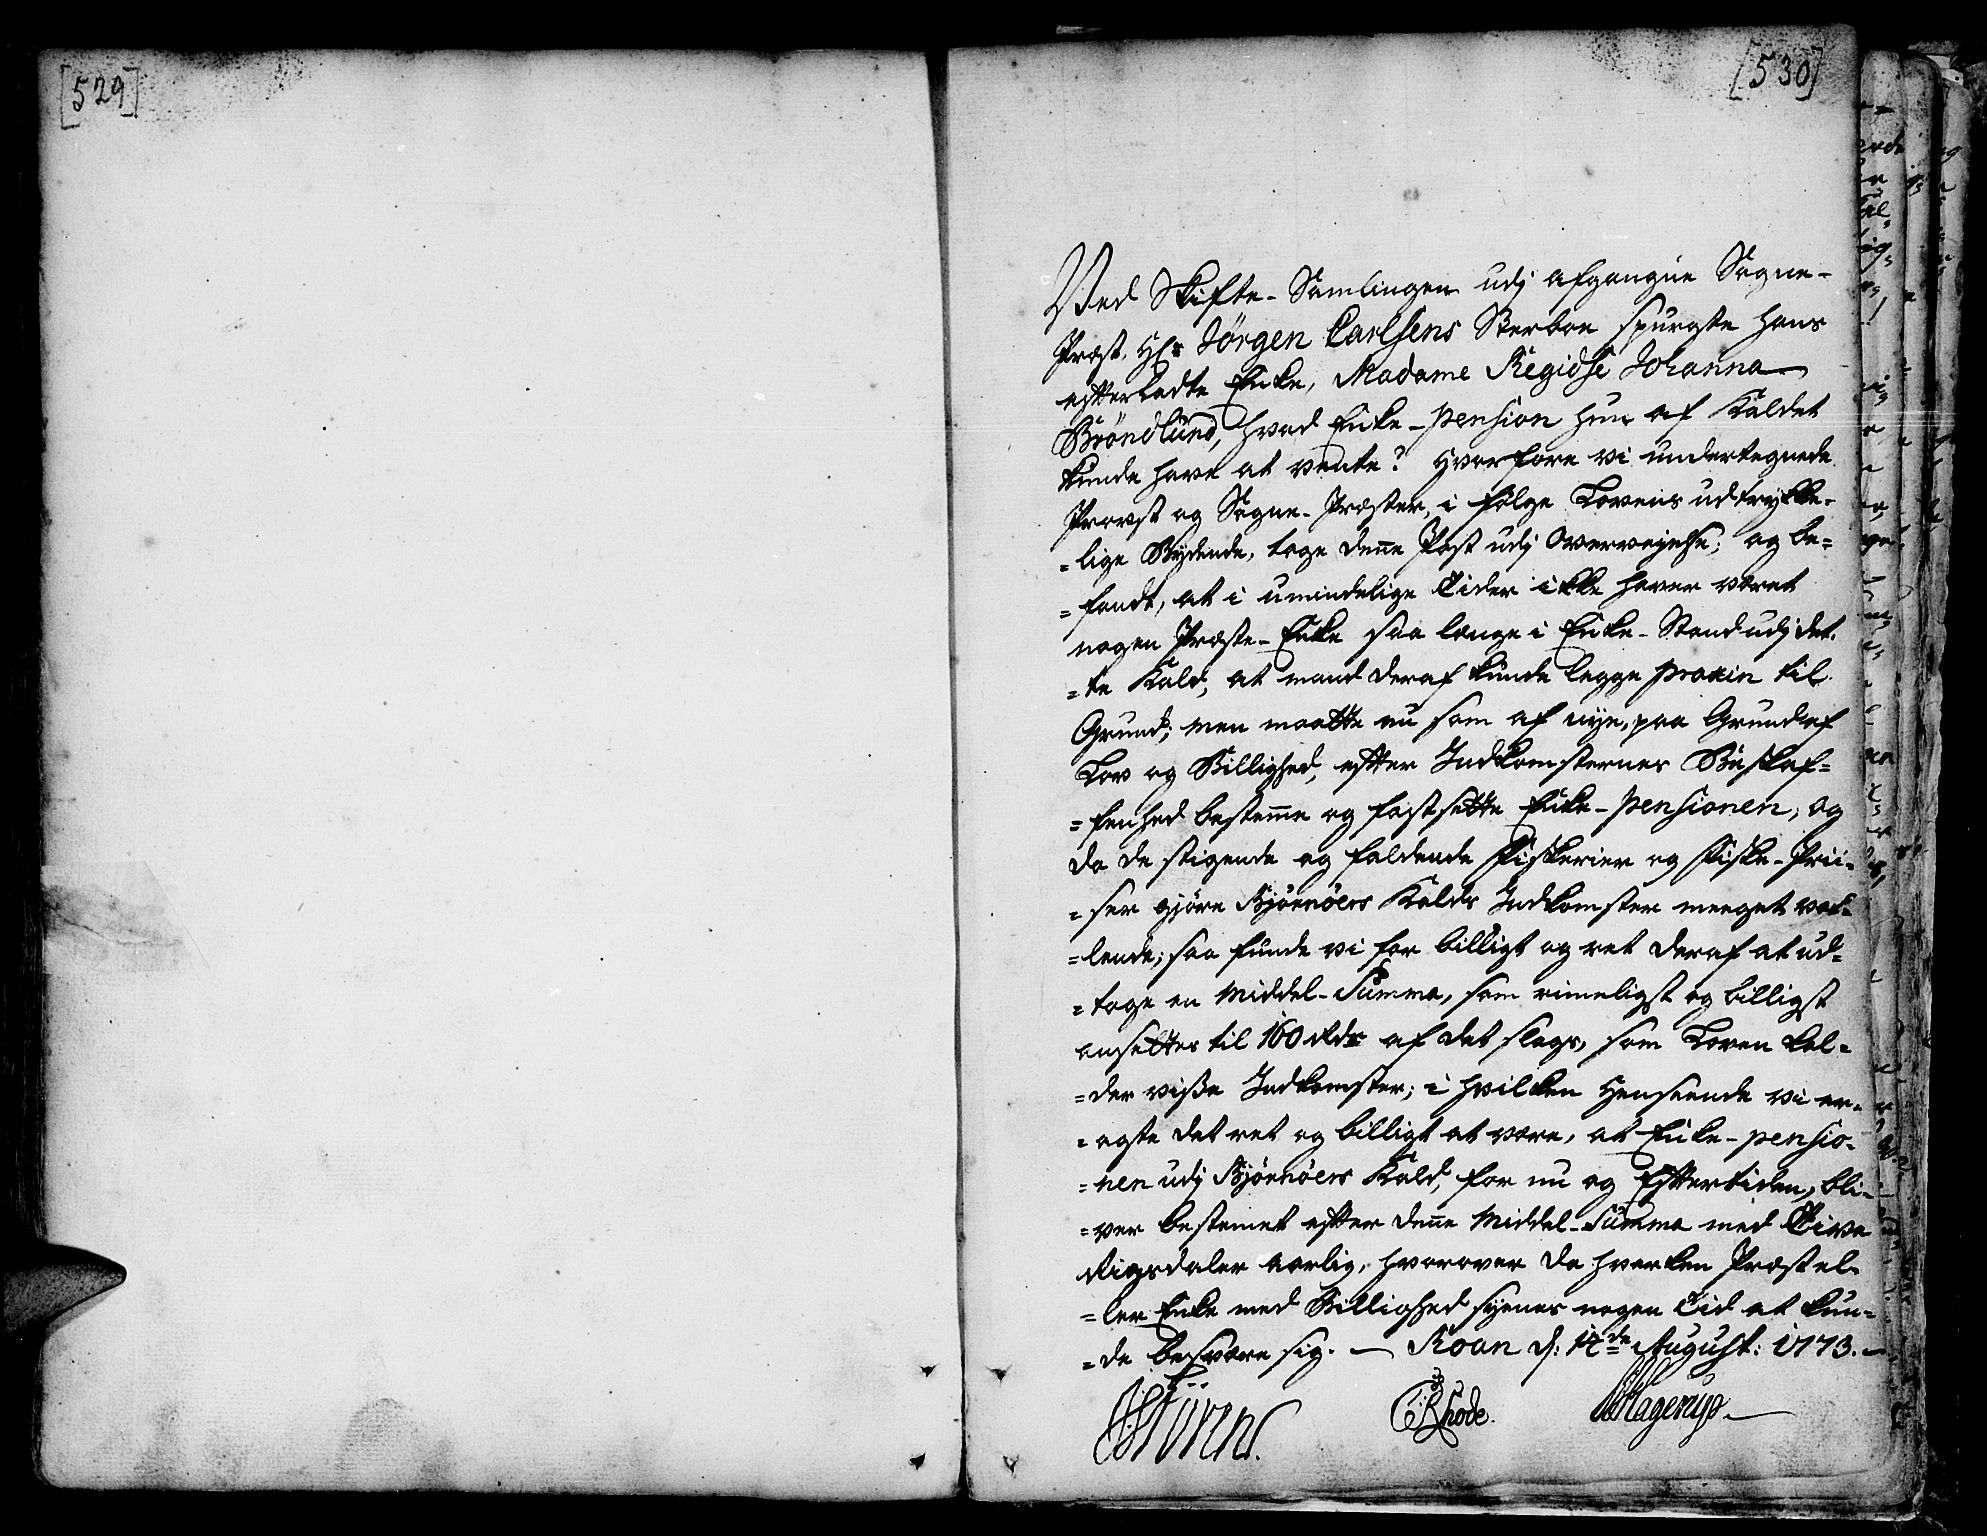 [529]
[530]
Ved Skifte-Samlingen udj afgangne Sogne-
Præst, Hr: Jörgen Carlsens Sterboe spurgte hans
efterladte Enke, Madame Regidse Johanna
Bröndlund, hvad Enke-pension hun af Kaldet
kunde have at vente? Hvorfore vi undertegnede
Provst og Sogne-Præster, i følge Lovens udtrykke-
=lige Bydende, toge denne Post udj Overveyelse; og be=
=fandt, at i umindelige Tider ikke haver været
nogen Præste-Enke saa længe i Enke-Stand udj det-
=te Kald, at mand deraf kunde legge praxin til
Grund; men maatte nu som af nye, paa Grund af
Lov og Billighed, efter Indkomsternes Beskaf=
=fenhed bestemme og fastsette Enke-pensionen, og
da de stigende og faldende Fiskerier og Fiske-Prii-
=ser gjøre Bjørnøers Kalds Indkomster meeget vak-
=lende; saa funde vi for billigt og ret deraf at ud=
=tage en Middel-Summa, som rimeligst og billigst
ansettes til 160 Rdr af det slags, som Loven kal=
=der visse Indkomster; i hvilken Henseende vi er-
=agte det ret og billigt at være, at Enke-pensio-
=nen udj Bjørnøers Kald, for nu og Eftertiden, bli-
=ver bestemet efter denne Middel-Summa med Tive
Rigsdaler aarlig, hvorover da hverken Præst el-
=ler Enke med Billighed synes nogen Tid at kun-
=de besvære sig. — Roan d: 14de August: 1773. —
Rhode. Hagerup.